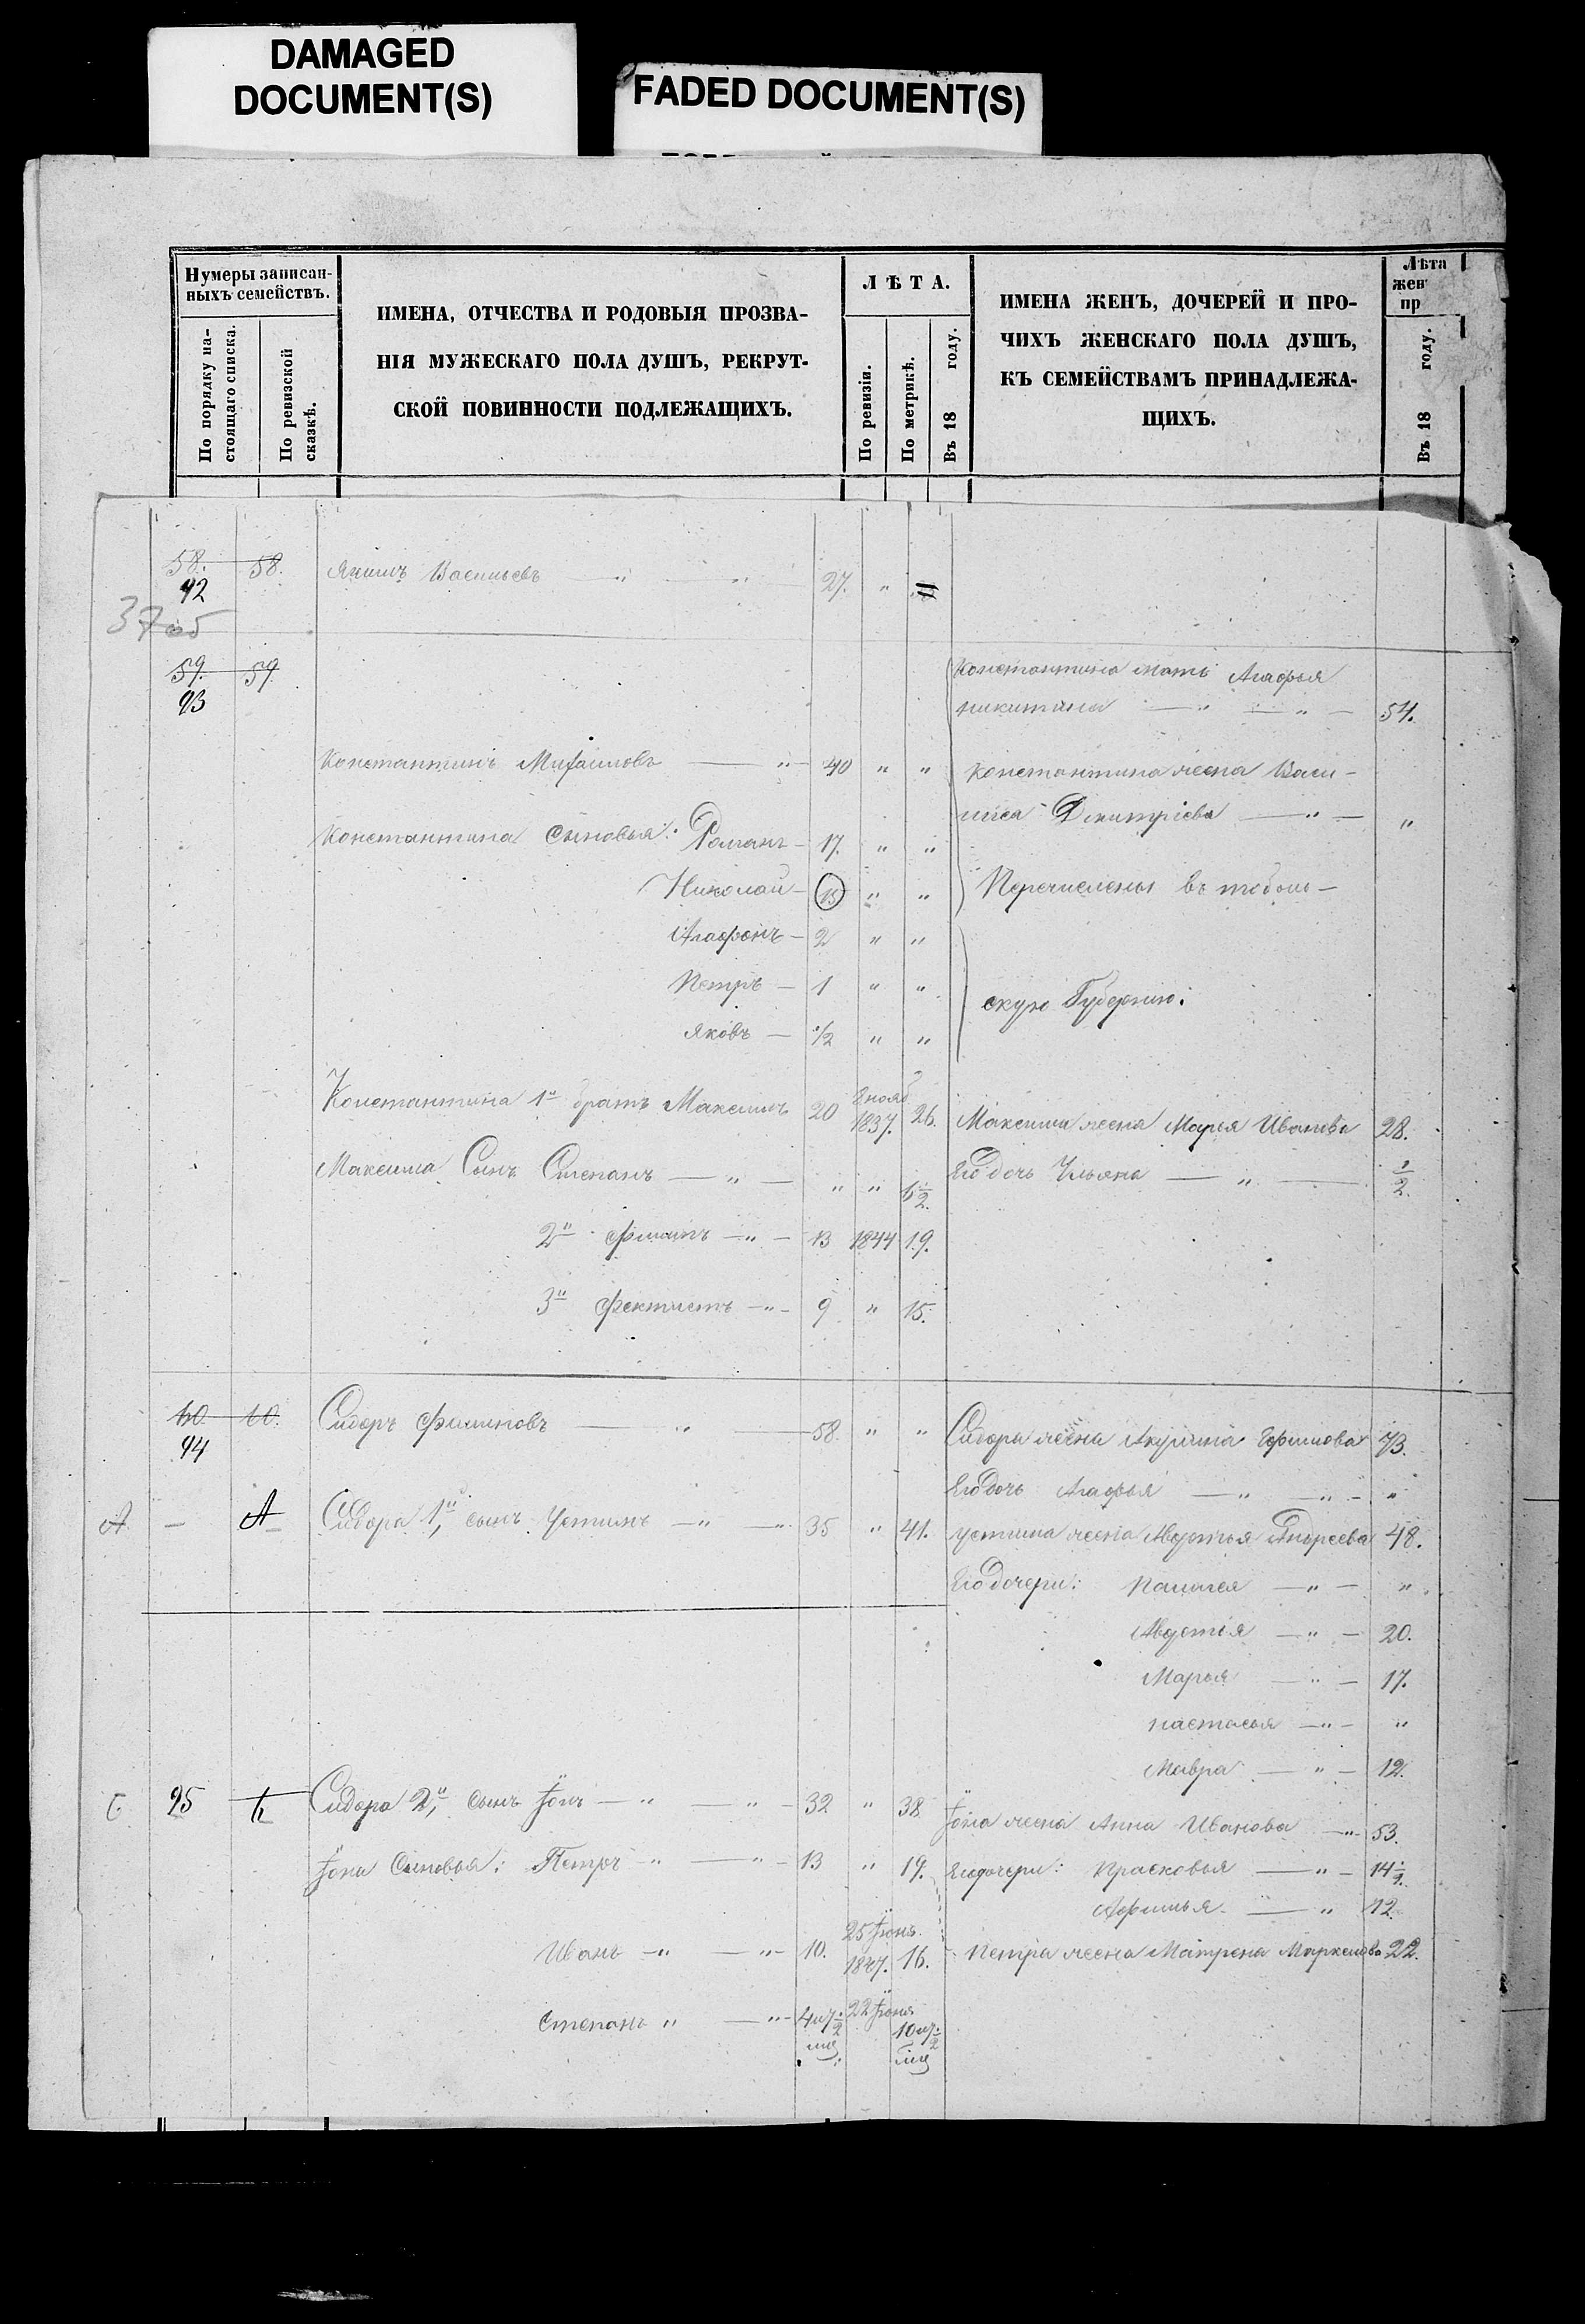 DAMAGED
DOCUMENT(S)
FADED DOCUMENT(S)
Нумеры записан-
ныхъ семействъ.
По порядку на-
стоящаго списка.
По ревизской
сказкѣ.
ИМЕНА, ОТЧЕСТВА И РОДОВЫЯ ПРОЗВА-
НІЯ МУЖЕСКАГО ПОЛА ДУШЪ, РЕКРУТ-
СКОЙ ПОВИННОСТИ ПОДЛЕЖАЩИХЪ.
ЛѢТА.
По ревизіи.
По метрикѣ.
Въ 18 году.
ИМЕНА ЖЕНЪ, ДОЧЕРЕЙ И ПРО-
ЧИХЪ ЖЕНСКАГО ПОЛА ДУШЪ,
КЪ СЕМЕЙСТВАМЪ ПРИНАДЛЕЖА-
ЩИХЪ.
Лѣта
жен
пр
Въ 18 году.
58. 58. Якимъ Васильевъ — " — " 27. "
92
37об
59. 59. Константина мать Агафья
93 никитина — " — " — 54.
Константинъ Михаиловъ — " — 40 " " Константина жена Васи-
лиса Дмитріева — " — "
Константина Сыновья: Романъ — 17. " "
Николай — 15 " " Перечислены въ тоболь-
Агафонъ — 2 " "
Петръ — 1 " " скую Губернию.
Яковъ — 1/2 " "
Константина 1й братъ Максимъ 20 1837. 26. Максима жена Марья Иванова 28.
Максима Сынъ Степанъ — " — " " 6 1/2. Его дочь Ульяна — " — 1/2.
2й Филипъ — " — 13 1844 19.
3й Фектистъ — " — 9 " 15.
60 60. Сидоръ Филиповъ — " — 58. " " Сидора жена Акулина Ефимова 73.
94 Его дочь Агафья — " — " — "
А — А Сидора 1й, сынъ Устинъ — " — " 35 " 41. устина жена Авдотья Андреева 48.
Его дочери: — " — "
Авдотья — " — 20.
Марья — " — 17.
настасья — " — "
Мавра — " — 12.
95 Сидора 2й, сынъ Іонъ — " — " — 32 " 38 Іона жена Анна Иванова — " — 53.
Іона Сыновья: Петръ — " — " — 13 " 19. Его дочери: Прасковья — " — 14
Афимья — " 12.
25 Іюня
Иванъ — " — " — 10. 1847. 16. Петра жена Матрена Маркелова 22.
Степанъ " — " — 4 м 7/2 22 Іюня 10 м 7/2